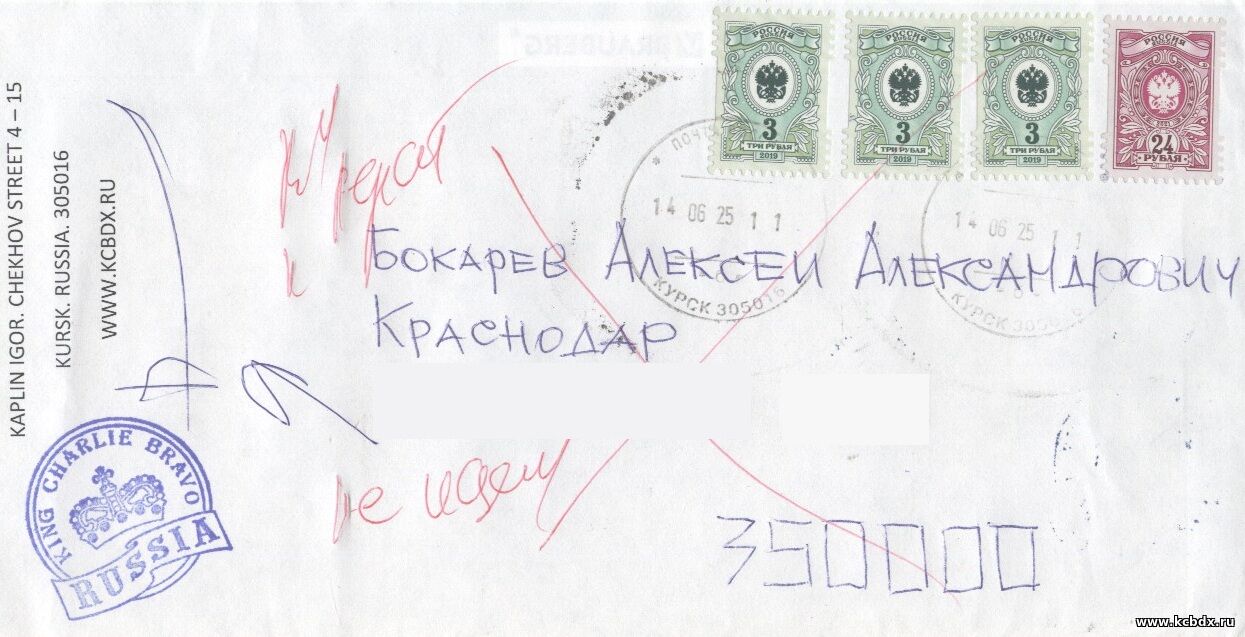 KAPLIN IGOR. CHEKHOV STREET 4 – 15
KURSK. RUSSIA. 305016
WWW.KCBDX.RU
BRAUBERG
РОССИЯ
3
ТРИ РУБЛЯ
2019
РОССИЯ
3
ТРИ РУБЛЯ
2019
РОССИЯ
3
ТРИ РУБЛЯ
2019
РОССИЯ
24
РУБЛЯ
14 06 25 11
КУРСК 305016
14 06 25 11
КУРСК 305016
БОКАРЕВ АЛЕКСЕЙ АЛЕКСАНДРОВИЧ
КРАСНОДАР
не
350000
KING CHARLIE BRAVO
RUSSIA
www.kcbdx.ru